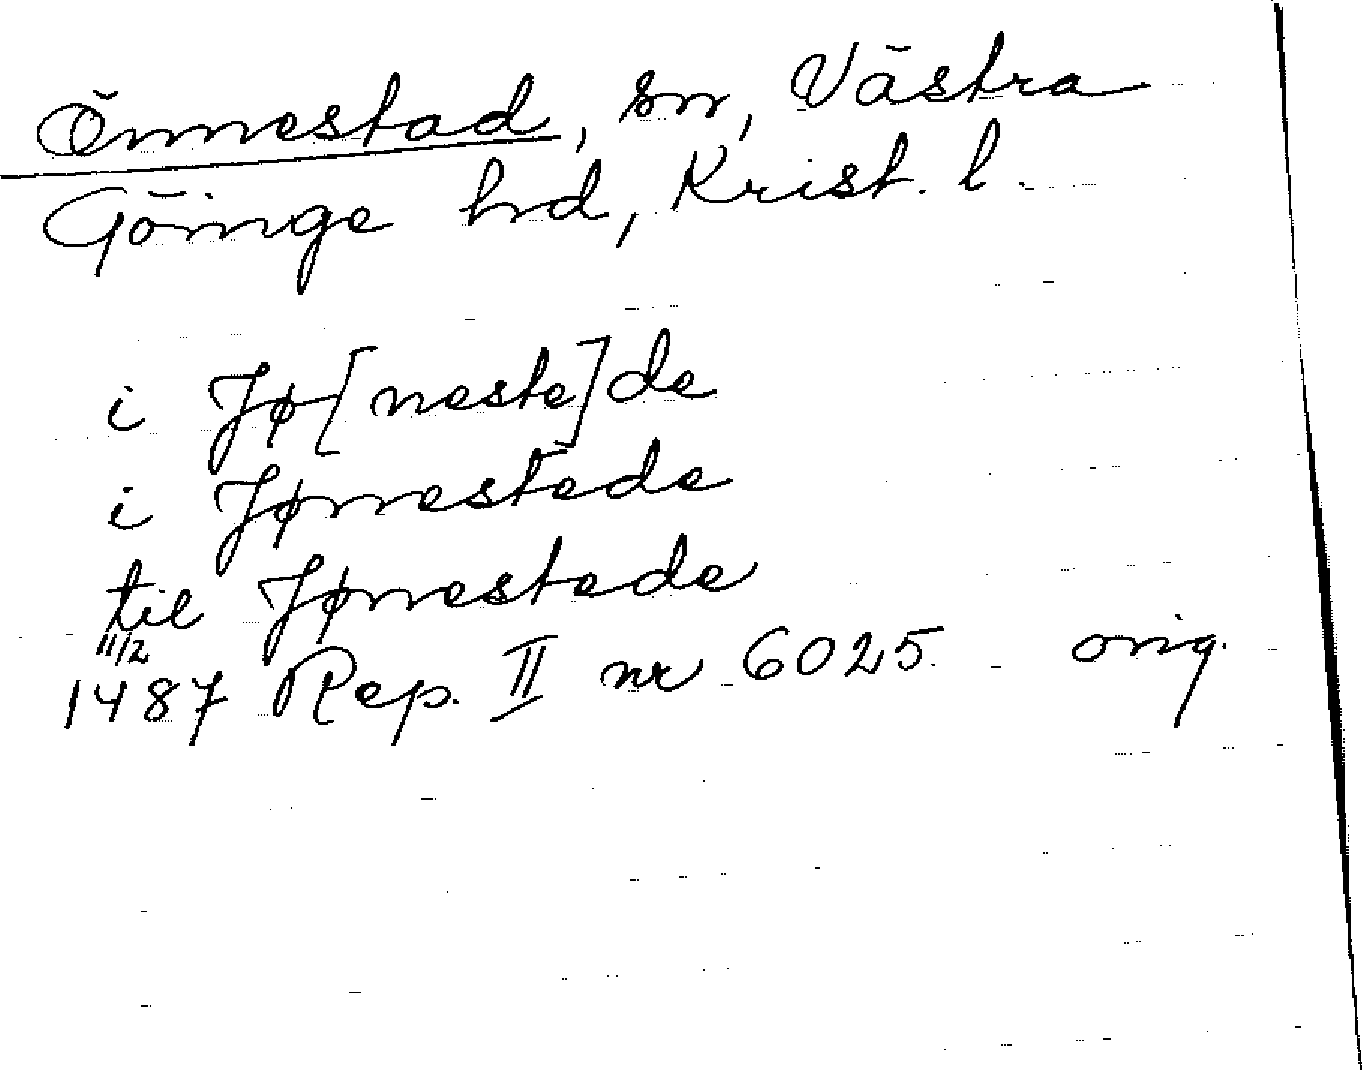 Önnestad, sn, Västra
Göinge hd, Krist. l.
i Jø[neste]de
i Jønestede
til Jønestede
11/2
1487 Rep. II nr 6025 orig.